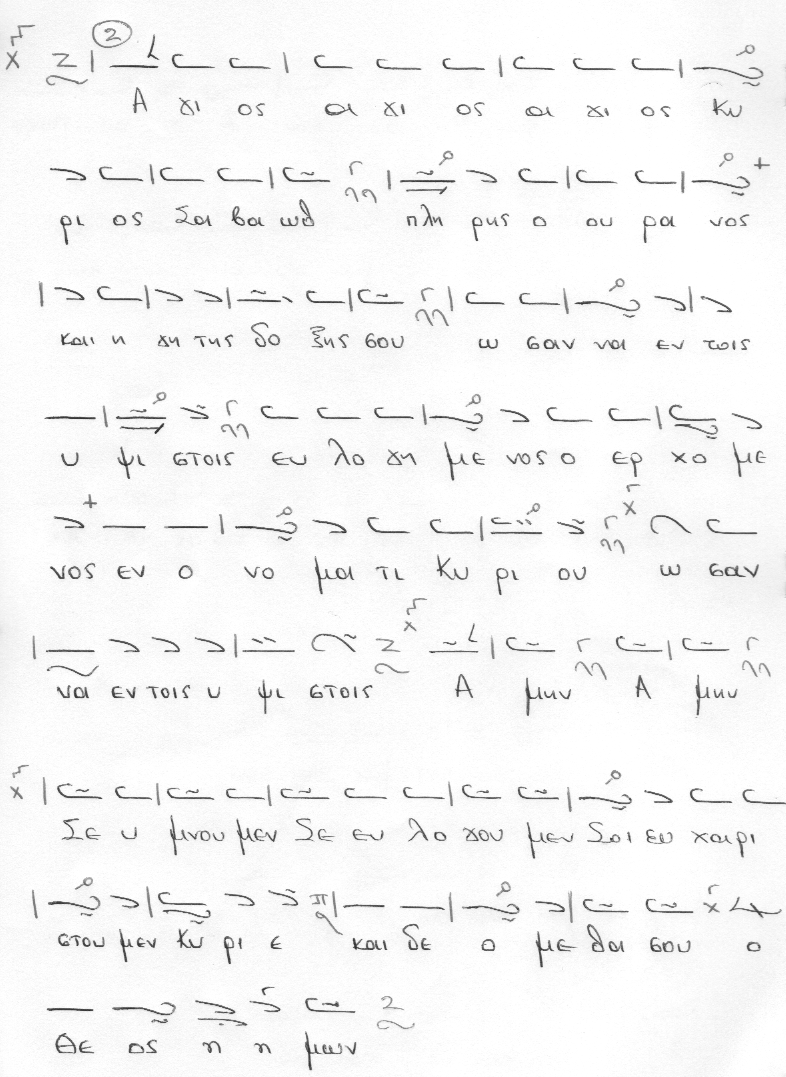 2
Α γι ος α γι ος α γι ος Κυ
ρι ος Σα βα ωθ πλη ρης ο ου ρα νος
και η γη της δο ξης σου ω σαν να εν τοις
υ ψι στοις ευ λο γη με νος ο ερ χο με
νος εν ο νο μα τι Κυ ρι ου ω σαν
να εν τοις υ ψι στοις Α μην Α μην
Σε υ μνου μεν Σε ευ λο γου μεν Σοι ευ χαρι
στου μεν Κυ ρι ε και δε ο με θα σου ο
Θε ος η η μων